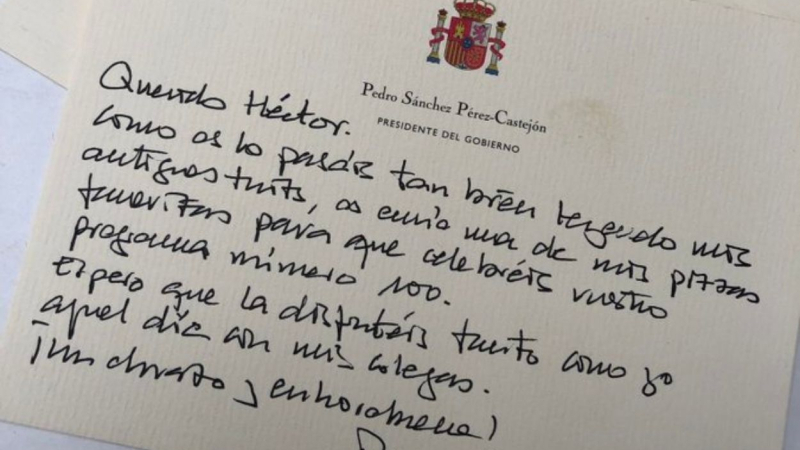 Pedro Sánchez Pérez-Castejón
PRESIDENTE DEL GOBIERNO
Querido Héctor.
como os lo pasáis tan bien leyendo mis
antiguos tuits, os envío una de mis pizzas
favoritas para que celebréis vuestro
programa número 100.
Espero que la disfrutéis tanto como yo
aquel día con mis colegas.
¡Un abrazo y enhorabuena!